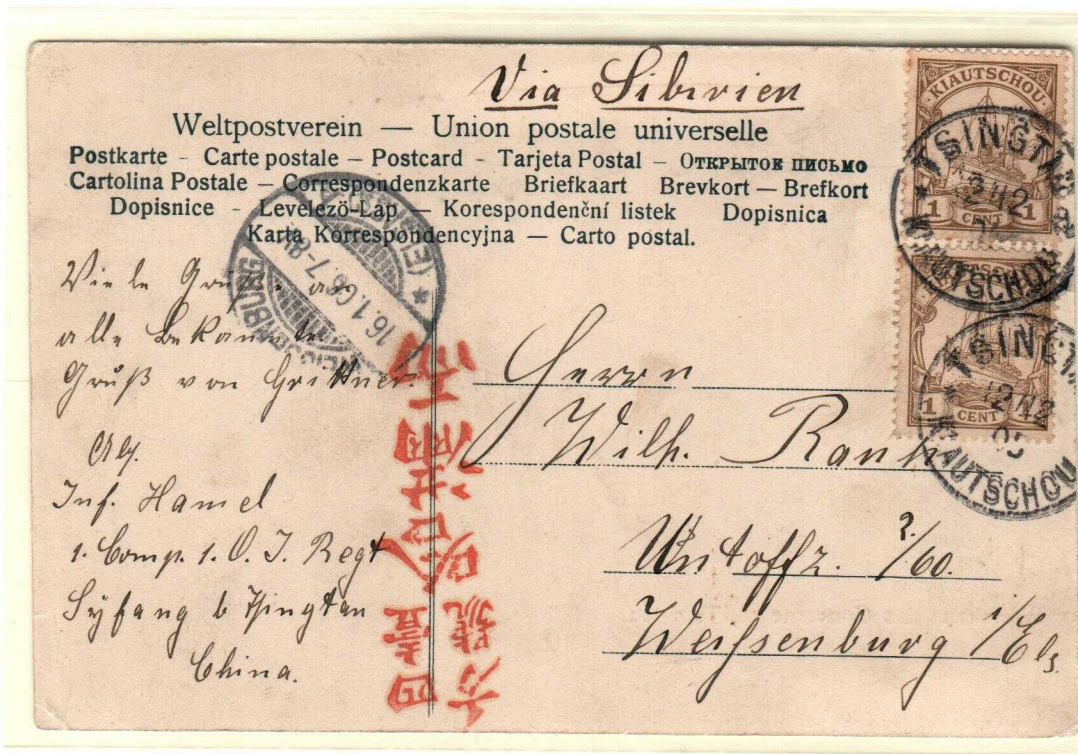 Via Sibirien
Weltpostverein — Union postale universelle
Postkarte - Carte postale – Postcard - Tarjeta Postal – Открытое письмо
Cartolina Postale – Correspondenzkarte Briefkaart Brevkort — Brefkort
Dopisnice - Levelező-Lap — Korespondenční listek Dopisnica
Karta Korrespondencyjna — Carto postal.
KIAUTSCHOU
1 CENT 1
1 CENT 1
TSINGTAU
KIAUTSCHOU
TSINGTAU
KIAUTSCHOU
WEISSENBURG (ELSASS)
16.1.06.7-8
Viele Grüße an
alle Bekannten
Gruß von Grittner.
Abs.
Inf. Hamel
1. Comp. 1. O. I. Regt
Syfang b Tsingtau
China.
Herrn
Wilh. Rank
Untoffz. 2/60.
Weißenburg i/Els